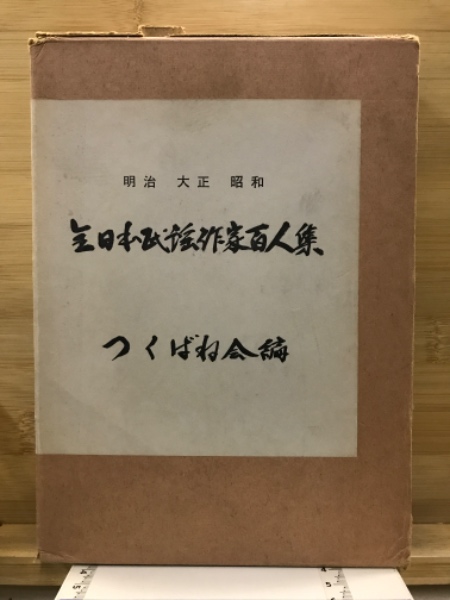 明治 大正 昭和
全日本民謡作家百人集
つくばね会編